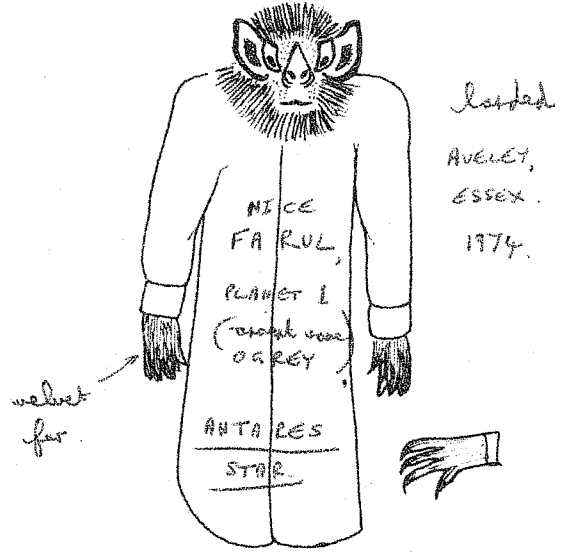 landed
AVELEY,
ESSEX.
1974.
NICE
FARUL,
PLANET 1
OGREY
ANTARES
STAR.
velvet
fur.